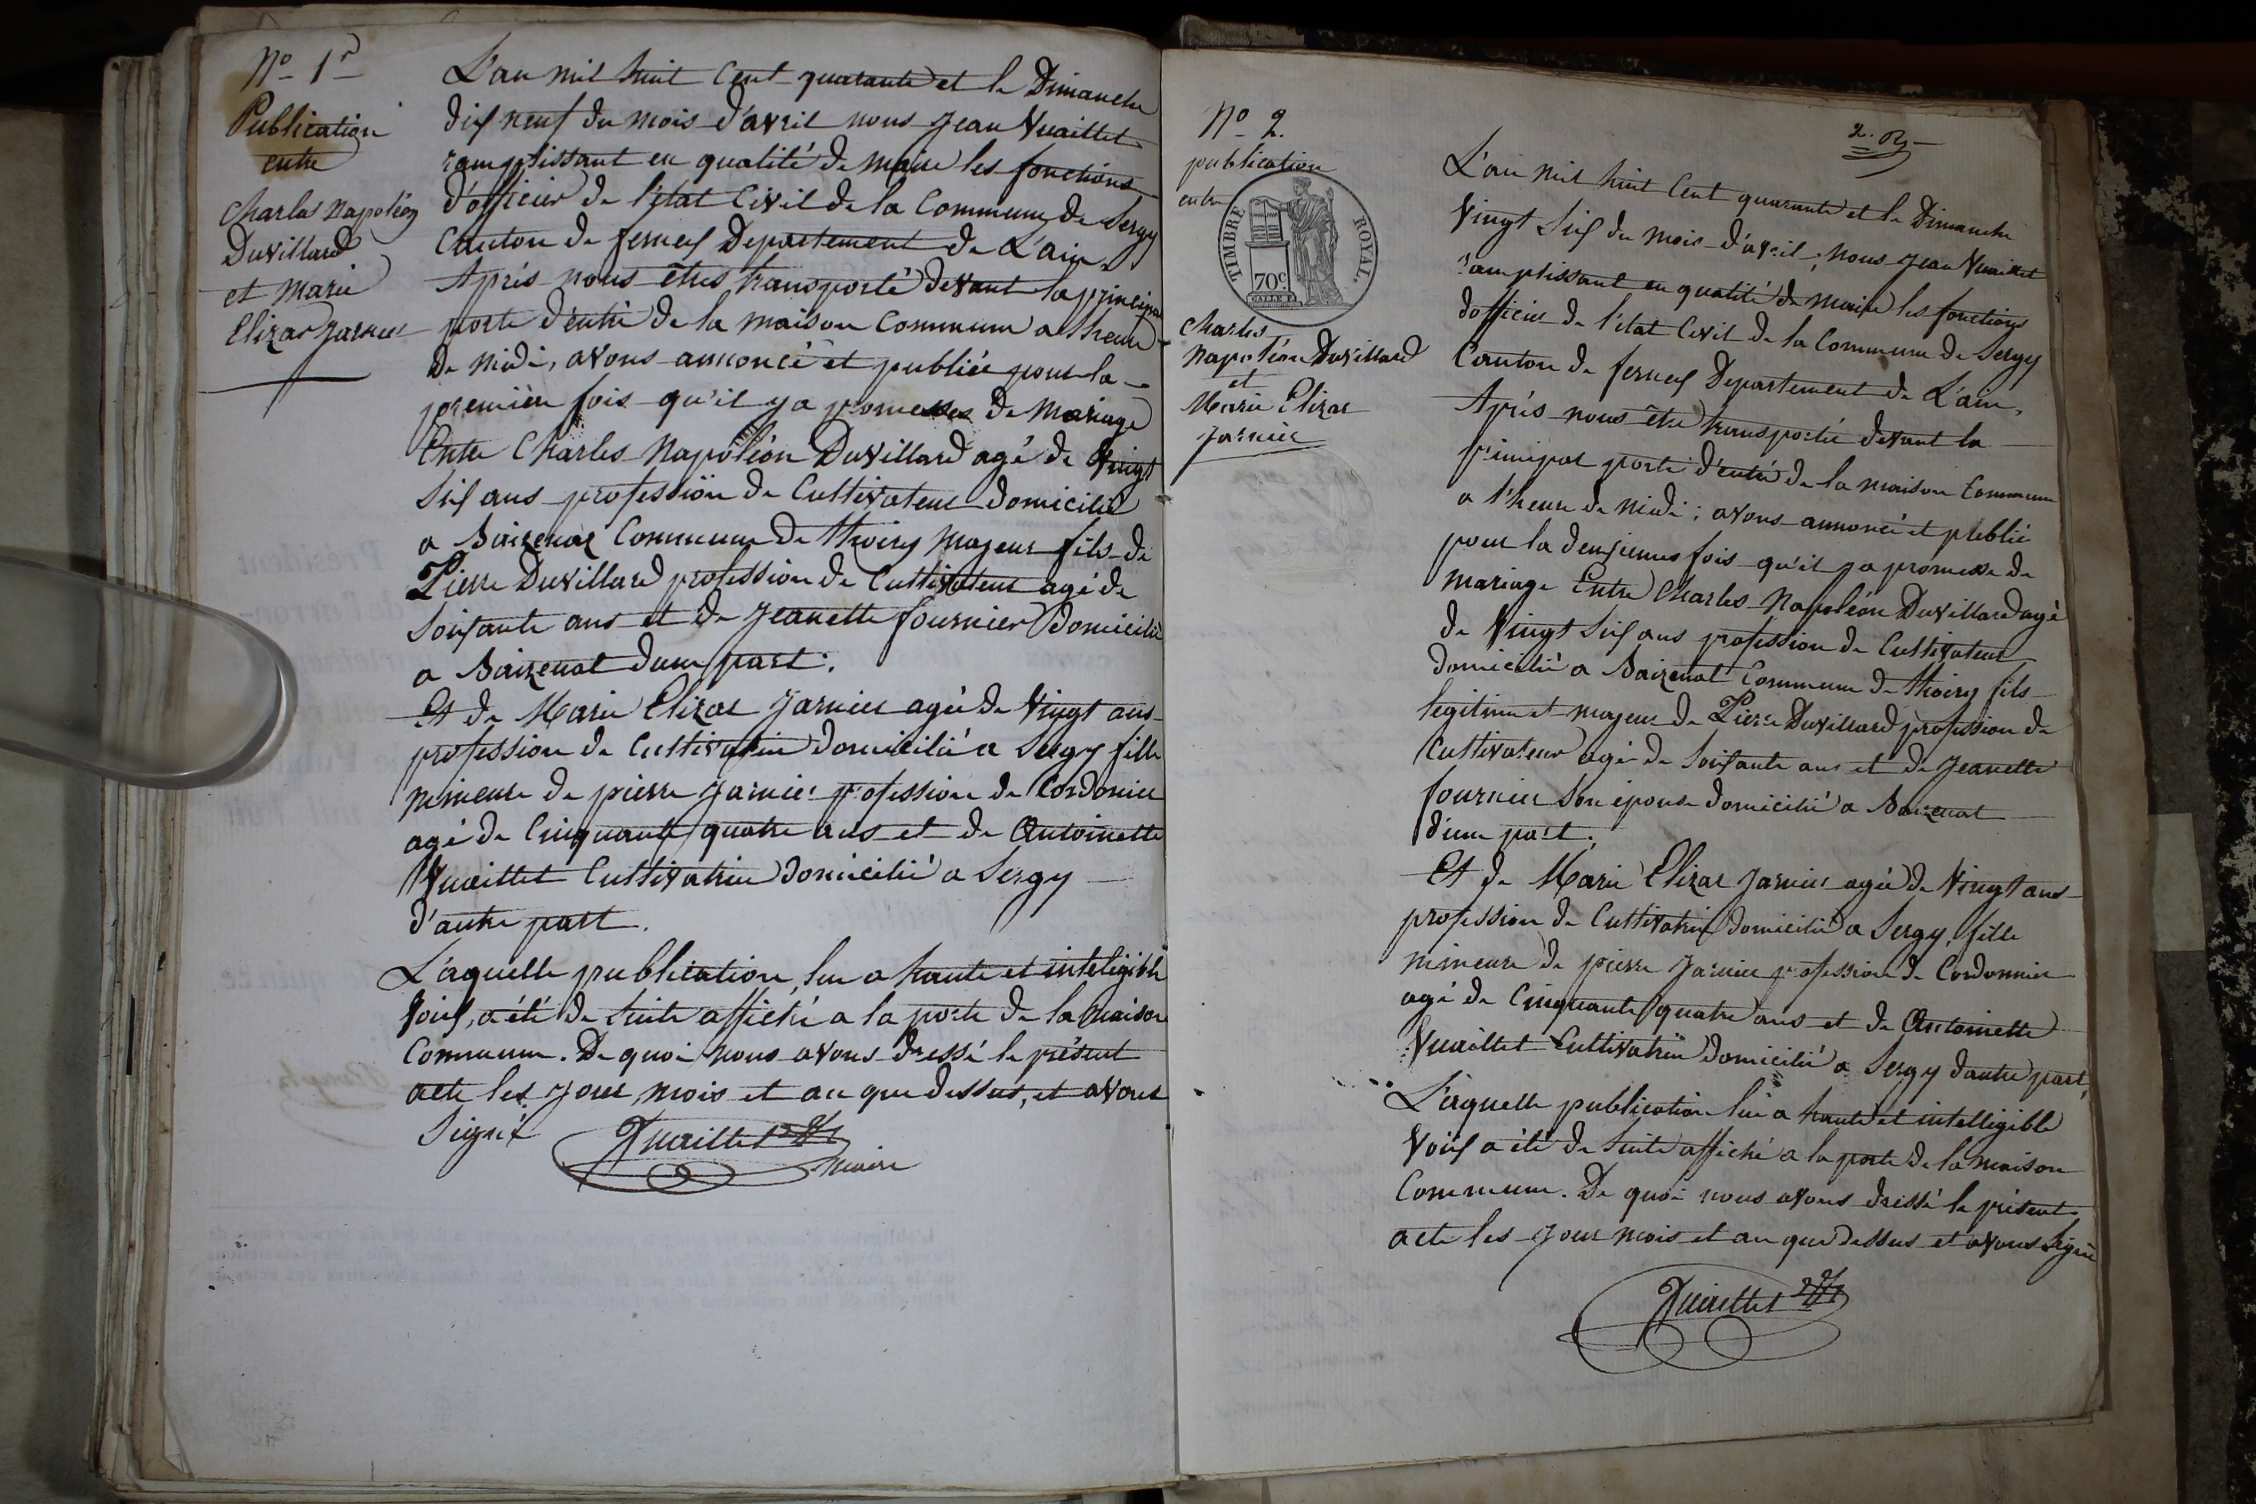 No 1r
Publication
entre
Charles Napoléon
Duvillard
et Marie
Elizae Jarnier
L'an mil huit Cent quarante et le Dimanche
dix neuf du mois d'avril nous Jean Vuaillet
ramplissant en qualité de maire les fonctions
d'officier de l'état Civil de la Commune de Sergy
Canton de fernex Departement de L'ain.
Après nous êtres transporté devant la principal
porte d'entré de la maison Commune a l'heure
De midi, avons annoncé et publiée pour la
première fois qu'il y a promesses de Mariage
Entre Charles Napoléon Duvillard agé de Vingt
Six ans profession de Cultivateur domicilié
a Baizenas Commune de Thoiry majeur fils de
Pierre Duvillard profession de Cultivateur agé de
Soixante ans et de Jeanette fournier domicilié
a Baizenat dune part;
Et de Marie Elizae Jarnier agée de Vingt ans
profession de Cultivatrice domicilié a Sergy fille
mineure de pierre Jarnier profession de Cordonier
agé de Cinquante quatre ans et de Antoinette
Vuaillet Cultivatrice domicilié a Sergy
d'autre part.
L'aquelle publication, lue a haute et inteligible
Voix, a été de Suite affiché a la porte de la Maison
Commune. De quoi nous avons dressé le présent
acte les Jour mois et an que dessus, et avons
Signé
Vuaillet
maire
2.
No 2.
publication
entre
TIMBRE ROYAL.
70c
Charles
Napoléon Duvillard
et
Marie Elizae
Jarnier
L'an mil huit Cent quarante et le Dimanche
Vingt Six du mois d'avril; nous Jean Vuaillet
ramplissant en qualité de maire les fonctions
d'officier de l'état Civil de la Commune de Sergy
Canton de fernex Departement de L'ain,
Après nous être transporté devant la
principal porte d'entré de la maison Commune
a l'heure de midi; avons annoncé et publié
pour la deuxiemes fois qu'il y a promesse de
mariage Entre Charles Napoléon Duvillard agé
de Vingt Six ans profession de Cultivateur
domicilié a Baizenat Commune de Thoiry fils
legitime et majeur de Pierre Duvillard profession de
Cultivateur agé de Soixante ans et de Jeanette
fournier Son épouse domicilié a Baizenat
d'une part;
Et de Marie Elizae Jarnier agée de Vingt ans
profession de Cultivatrice domicilié a Sergy, fille
mineure de pierre Jarnier profession de Cordonnier
agé de Cinquante quatre ans et de Antoinette
Vuaillet Cultivatrice domicilié a Sergy dautre part,
L'aquelle publication lue a haute et intelligible
Voix a été de Suite affiché a la porte de la maison
Commune. De quoi nous avons dressé le présent
acte les Jour mois et an que dessus et avons Signé
Vuaillet